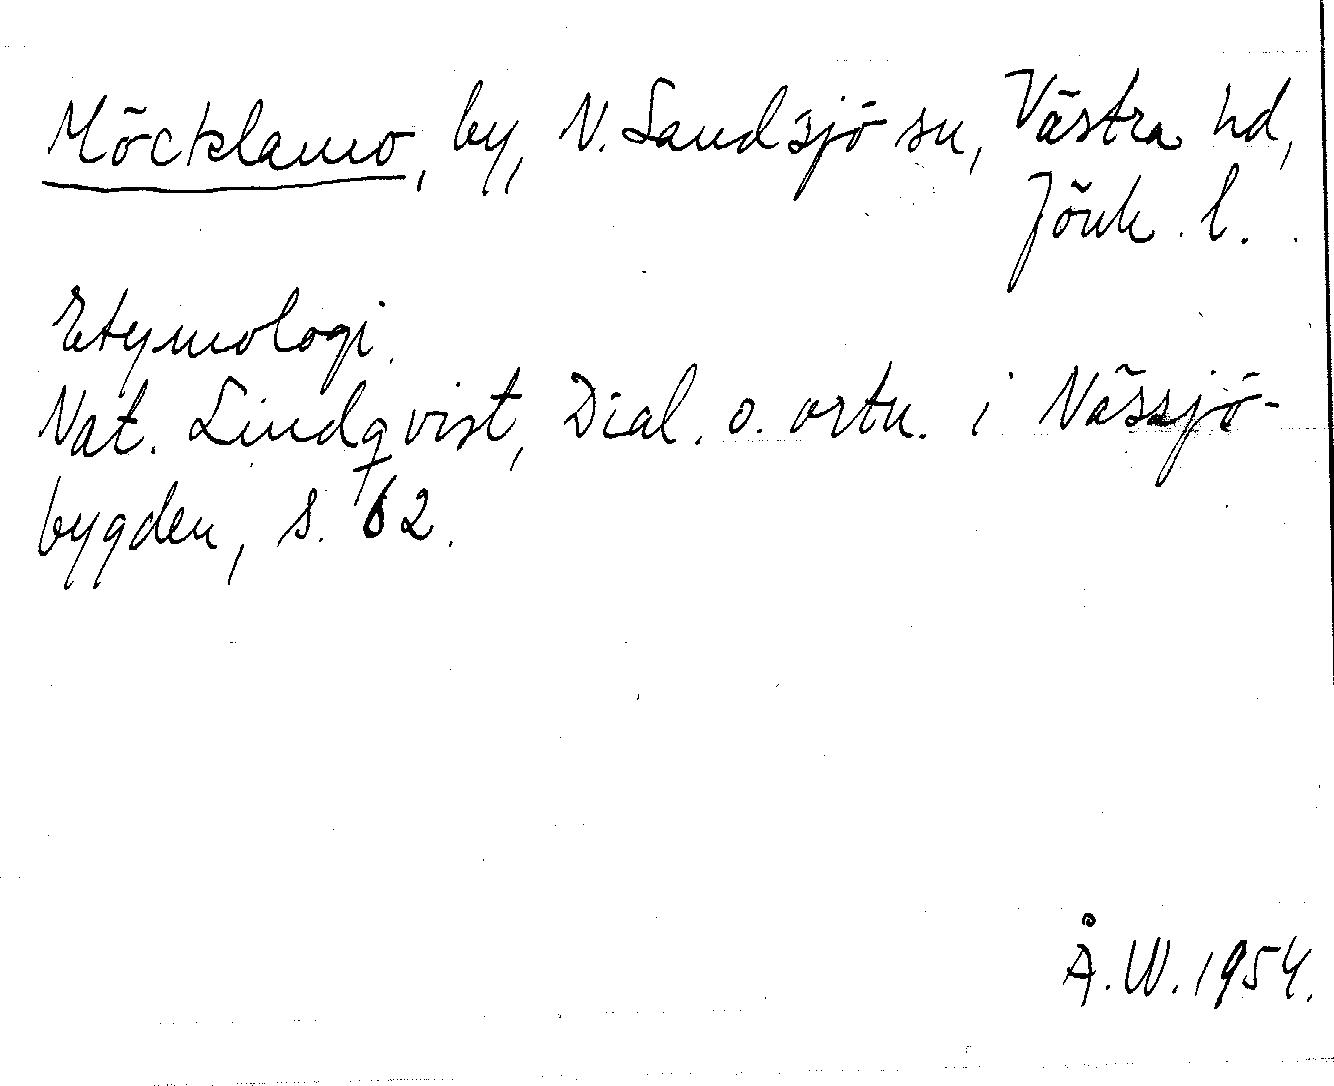 Möcklamo, by, N. Sandsjö sn, Västra hd,
Jönk. l.
Etymologi.
Nat. Lindqvist, Dial. o. ortn. i Nässjö-
bygden, s. 62.
Å.W. 1954.